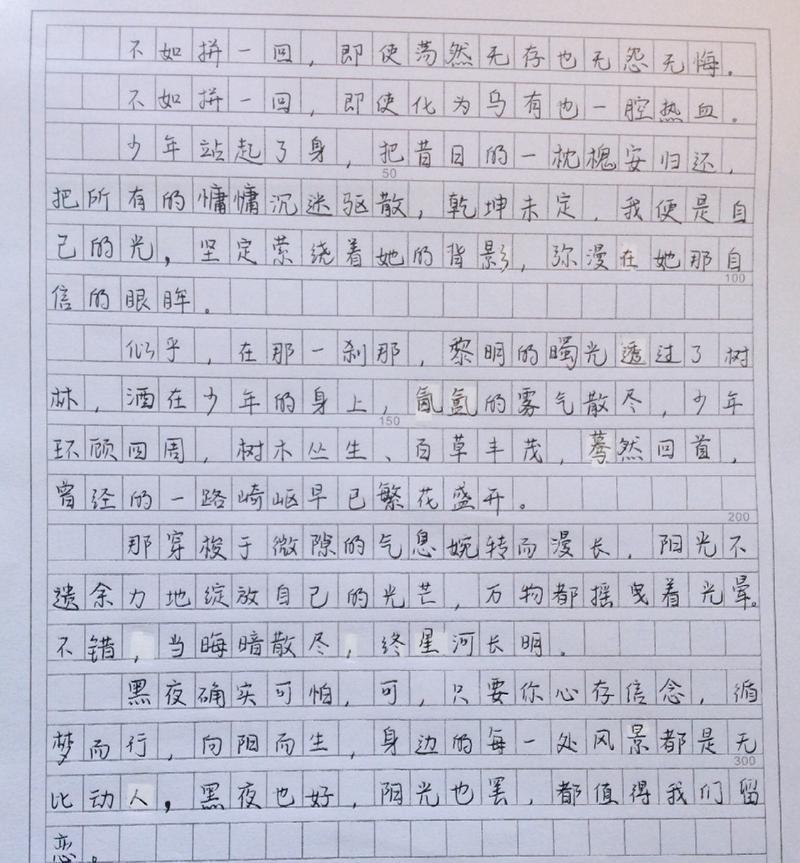 不如拼一回，即使荡然无存也无怨无悔。
不如拼一回，即使化为乌有也一腔热血。
少年站起了身，把昔日的一枕槐安归还，
50
把所有的慵慵沉迷驱散，乾坤未定，我便是自
己的光，坚定萦绕着她的背影，弥漫在她那自
100
信的眼眸。
似乎，在那一刹那，黎明的曙光透过了树
林，洒在少年的身上，氤氲的雾气散尽，少年
150
环顾四周，树木丛生、百草丰茂，蓦然回首，
曾经的一路崎岖早已繁花盛开。
200
那穿梭于微隙的气息婉转而漫长，阳光不
遗余力地绽放自己的光芒，万物都摇曳着光晕。
不错，当晦暗散尽，终星河长明。
黑夜确实可怕，可，只要你心存信念，循
梦而行，向阳而生，身边的每一处风景都是无
300
比动人，黑夜也好，阳光也罢，都值得我们留
恋。